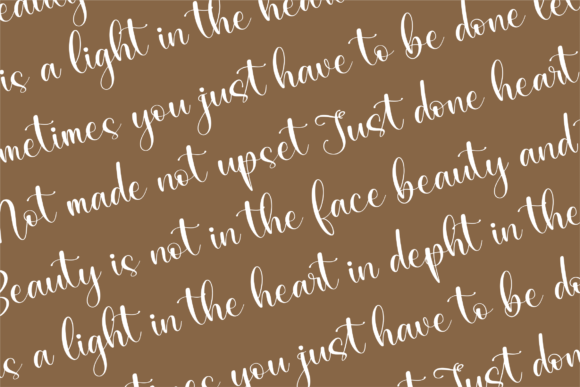 eauty
is a light in the heart
metimes you just have to be done let
Not made not upset Just done heart
Beauty is not in the face beauty and
s a light in the heart in depht in the
times you just have to be do
t Just don